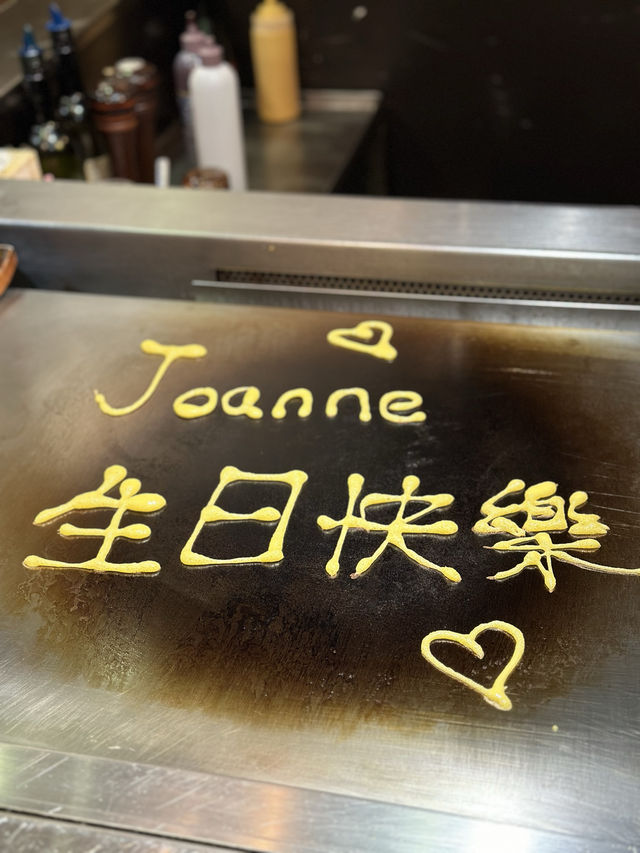 Joanne
生日快樂